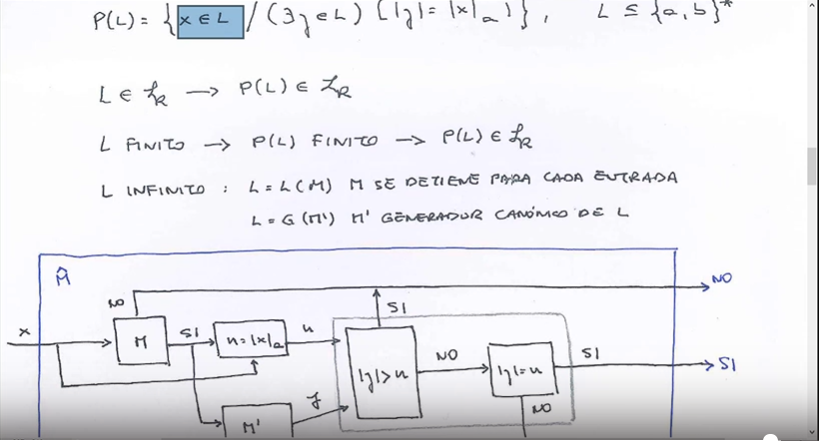 P(L) = { x ∈ L / (∃y ∈ L) (|y| = |x|ₐ) }, L ⊆ {a, b}*
L ∈ ℒR → P(L) ∈ ℒR
L FINITO → P(L) FINITO → P(L) ∈ ℒR
L INFINITO : L = L(M) M SE DETIENE PARA CADA ENTRADA
L = G(M') M' GENERADOR CANÓNICO DE L
M̂
NO
NO
SI
x
M
SI
n = |x|ₐ
n
|y| > n
NO
|y| = n
SI
SI
M'
y
NO